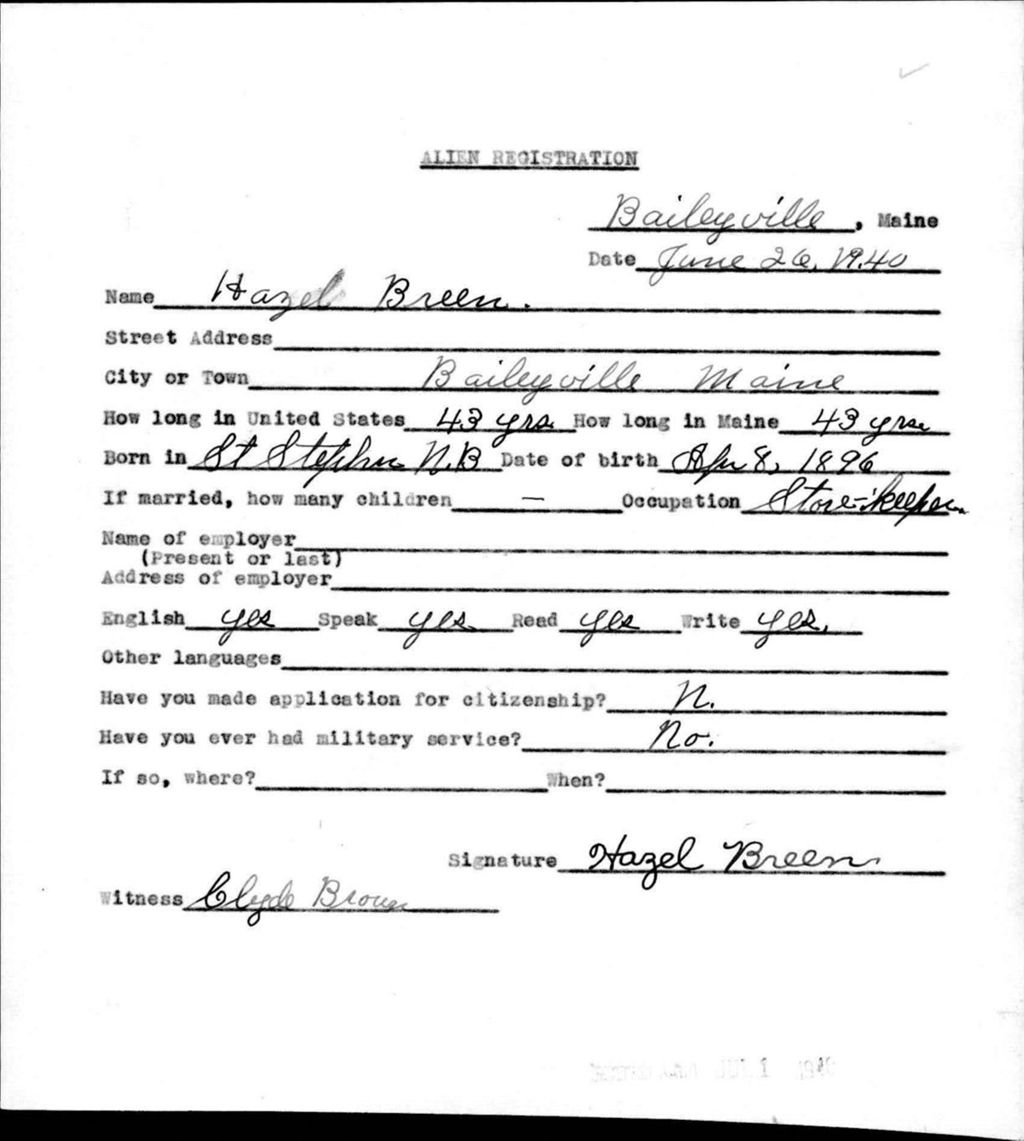 ALIEN REGISTRATION
Baileyville, Maine
Date June 26, 1940
Name Hazel Breen.
Street Address
City or Town Baileyville Maine
How long in United States 43 yrs. How long in Maine 43 yrs.
Born in St Stephen N.B Date of birth Apr 8, 1896
If married, how many children — Occupation Store-keeper.
Name of employer
(Present or last)
Address of employer
English yes Speak yes Read yes Write yes.
Other languages
Have you made application for citizenship? N.
Have you ever had military service? No.
If so, where? When?
Signature Hazel Breen
Witness Clyde Brown
JUL 1 1940